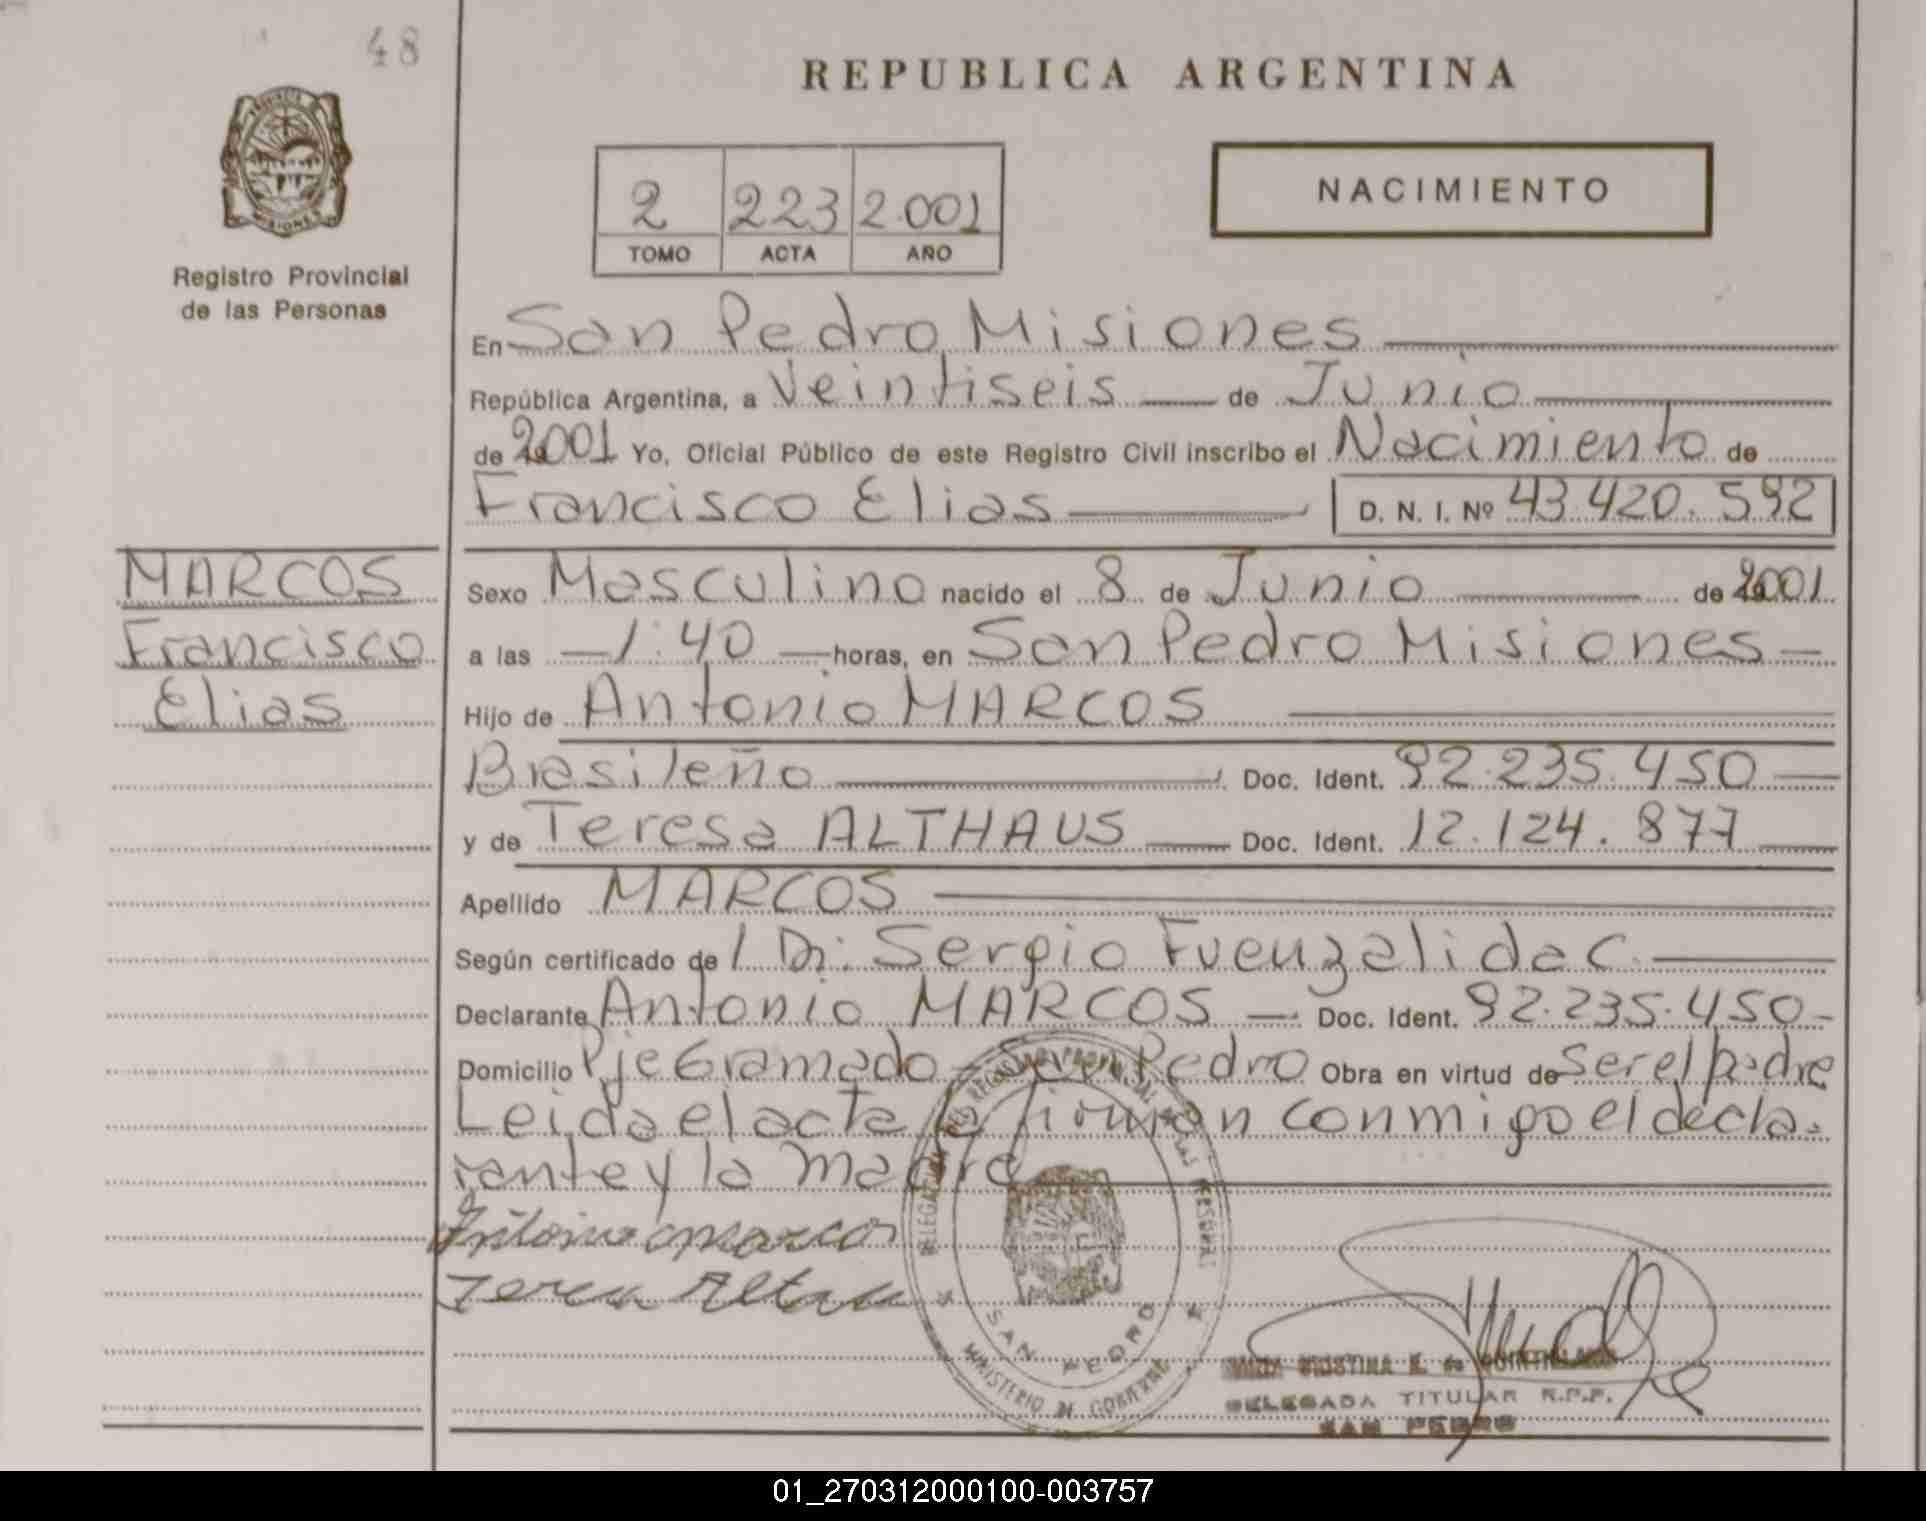 48
REPUBLICA ARGENTINA
NACIMIENTO
2 223 2.001
TOMO ACTA AÑO
MISIONES
Registro Provincial
de las Personas
En San Pedro Misiones
República Argentina, a Veintiseis de Junio
de 2001 Yo, Oficial Público de este Registro Civil inscribo el Nacimiento de
Francisco Elias D. N. I. Nº 43.420.592
MARCOS
Francisco
Elias
Sexo Masculino nacido el 8 de Junio de 2001
a las 1:40 horas, en San Pedro Misiones
Hijo de Antonio MARCOS
Brasileño Doc. Ident. 92.235.450
y de Teresa ALTHAUS Doc. Ident. 12.124.877
Apellido MARCOS
Según certificado de / Dr: Sergio Fuenzalida C.
Declarante Antonio MARCOS Doc. Ident. 92.235.450
Domicilio Pje Gramado - San Pedro Obra en virtud de Ser el padre
Leida el acta la firman conmigo el decla-
rante y la madre
Antonio marcos
DELEGACION DEL REGISTRO PROVINCIAL DE LAS PERSONAS
SAN PEDRO
MINISTERIO DE GOBIERNO
CRISTINA
DELEGADA TITULAR R.P.P.
SAN PEDRO
01_270312000100-003757